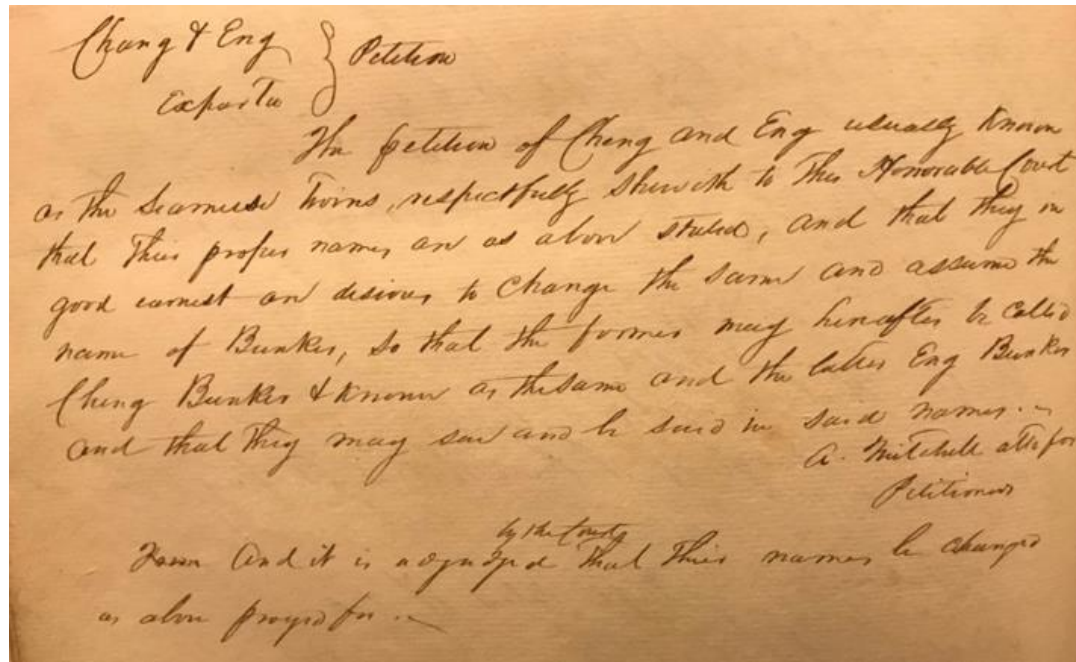 Chang & Eng } Petition
Exparte
The petition of Chang and Eng usually known
as the Seamese Twins, respectfully sheweth to this Honorable Court
that their proper names are as above stated, and that they in
good earnest are desirous to change the same and assume the
name of Bunker, so that the former may hereafter be called
Chang Bunker & known as the same and the latter Eng Bunker
and that they may sue and be sued in said names. ~
A. Mitchell atto for
Petitioners
by the Court
And it is adjudged that their names be changed
as above prayed for. ~